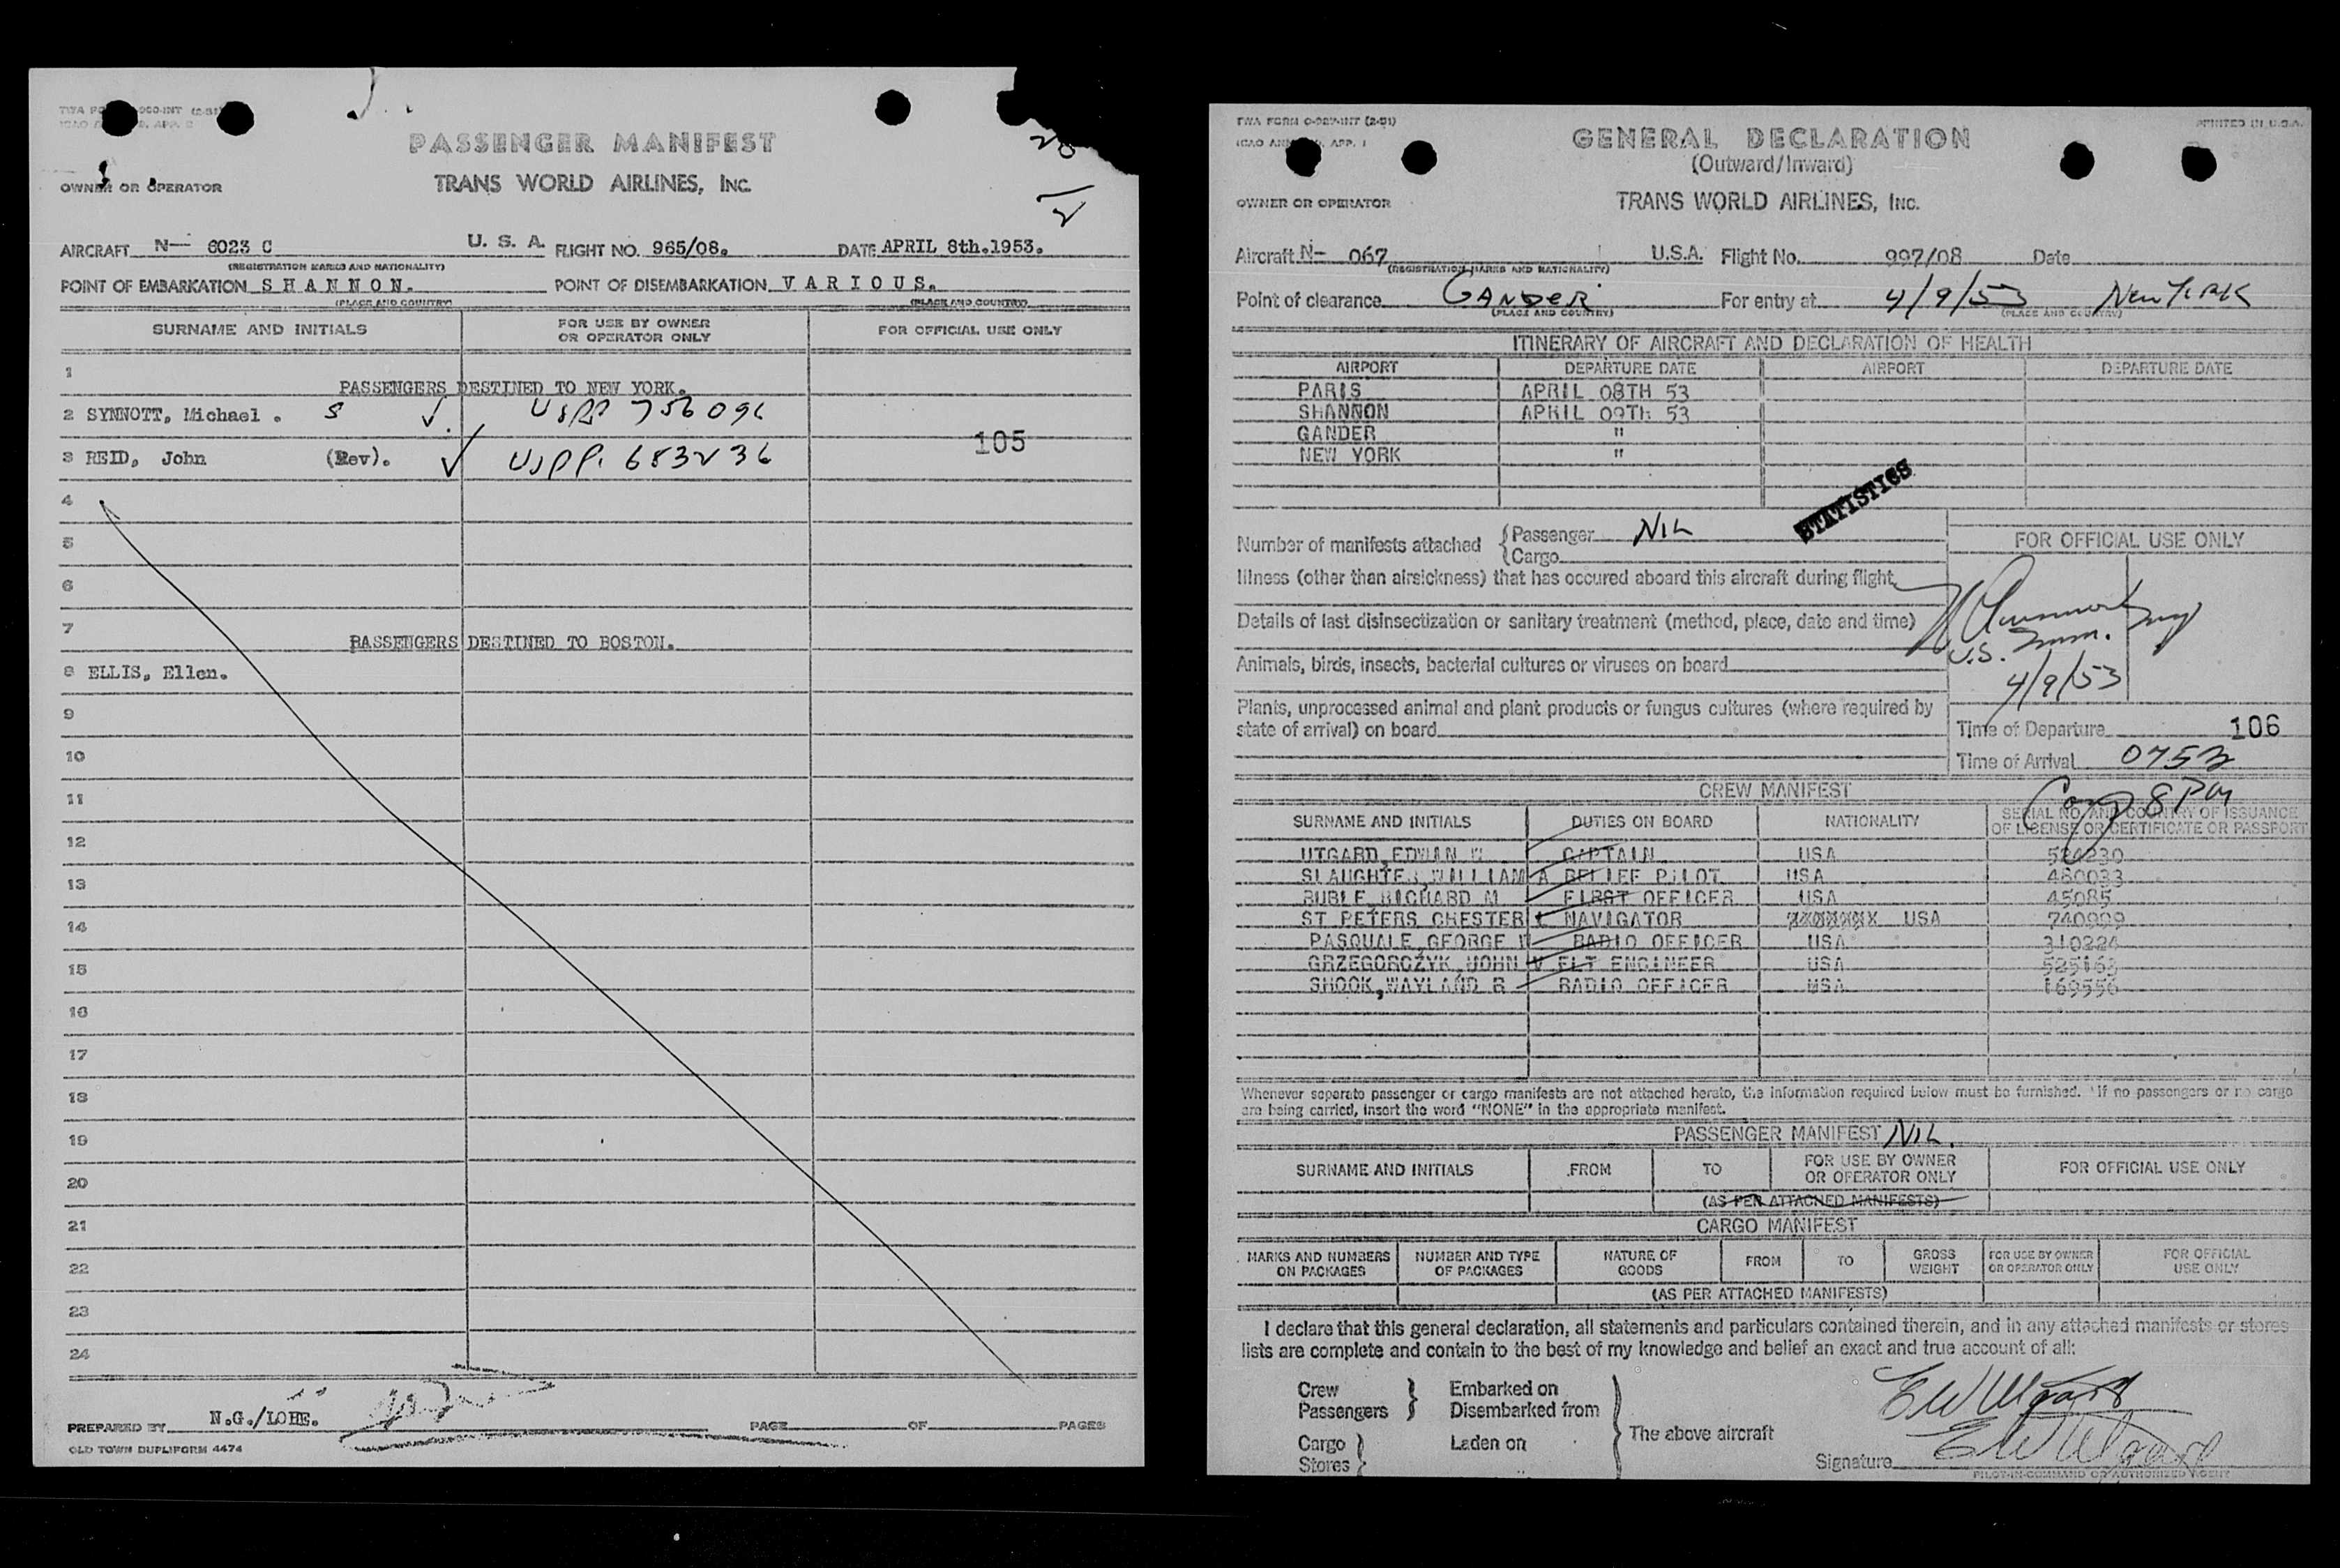 PASSENGER MANIFEST
OWNER OR OPERATOR TRANS WORLD AIRLINES, INC.
AIRCRAFT N- 6023 C U. S. A. FLIGHT NO. 965/08. DATE APRIL 8th.1953.
(REGISTRATION MARKS AND NATIONALITY)
POINT OF EMBARKATION S H A N N O N. POINT OF DISEMBARKATION V A R I O U S.
(PLACE AND COUNTRY) (PLACE AND COUNTRY)
SURNAME AND INITIALS FOR USE BY OWNER OR OPERATOR ONLY FOR OFFICIAL USE ONLY
1
PASSENGERS DESTINED TO NEW YORK.
2 SYNNOTT, Michael . S
105
3 REID, John (Rev). USPP. 683236
4
5
6
7
PASSENGERS DESTINED TO BOSTON.
8 ELLIS, Ellen.
9
10
11
12
13
14
15
16
17
18
19
20
21
22
23
24
PREPARED BY N.G./LOHE. PAGE OF PAGES
OLD TOWN DUPLIFORM 4474
TWA FORM (2-51) PRINTED IN U.S.A.
GENERAL DECLARATION
(Outward/Inward)
OWNER OR OPERATOR TRANS WORLD AIRLINES, INC.
Aircraft N- 067 U.S.A. Flight No. 997/08 Date
(REGISTRATION MARKS AND NATIONALITY)
Point of clearance GANDER For entry at 4/9/53 New York
(PLACE AND COUNTRY) (PLACE AND COUNTRY)
ITINERARY OF AIRCRAFT AND DECLARATION OF HEALTH
AIRPORT DEPARTURE DATE AIRPORT DEPARTURE DATE
PARIS APRIL 08TH 53
SHANNON APRIL 09TH 53
GANDER "
NEW YORK "
STATISTICS
Number of manifests attached { Passenger NIL
Cargo
FOR OFFICIAL USE ONLY
Illness (other than airsickness) that has occured aboard this aircraft during flight
Details of last disinsectization or sanitary treatment (method, place, date and time)
U.S. Imm. Insp
Animals, birds, insects, bacterial cultures or viruses on board
4/9/53
Plants, unprocessed animal and plant products or fungus cultures (where required by
state of arrival) on board
Time of Departure 106
Time of Arrival 0753
CREW MANIFEST
SURNAME AND INITIALS DUTIES ON BOARD NATIONALITY SERIAL NO. AND COUNTRY OF ISSUANCE OF LICENSE OR CERTIFICATE OR PASSPORT
UTGARD,EDWIN W CAPTAIN USA 524230
SLAUGHTER,WILLIAM A RELIEF PILOT USA 480033
RUBLE,RICHARD M FIRST OFFICER USA 45085
ST PETERS CHESTER NAVIGATOR USA 740909
PASQUALE,GEORGE RADIO OFFICER USA 310224
GRZEGORCZYK,JOHN V FLT ENGINEER USA 525163
SHOOK,WAYLAND R RADIO OFFICER USA 169556
Whenever separate passenger or cargo manifests are not attached hereto, the information required below must be furnished. If no passengers or no cargo
are being carried, insert the word "NONE" in the appropriate manifest.
PASSENGER MANIFEST NIL.
SURNAME AND INITIALS FROM TO FOR USE BY OWNER OR OPERATOR ONLY FOR OFFICIAL USE ONLY
(AS PER ATTACHED MANIFESTS)
CARGO MANIFEST
MARKS AND NUMBERS ON PACKAGES NUMBER AND TYPE OF PACKAGES NATURE OF GOODS FROM TO GROSS WEIGHT FOR USE BY OWNER OR OPERATOR ONLY FOR OFFICIAL USE ONLY
(AS PER ATTACHED MANIFESTS)
I declare that this general declaration, all statements and particulars contained therein, and in any attached manifests or stores
lists are complete and contain to the best of my knowledge and belief an exact and true account of all:
Crew Embarked on
Passengers Disembarked from
The above aircraft
Cargo Laden on
Stores
Signature E W Utgard
PILOT-IN-COMMAND OR AUTHORIZED AGENT